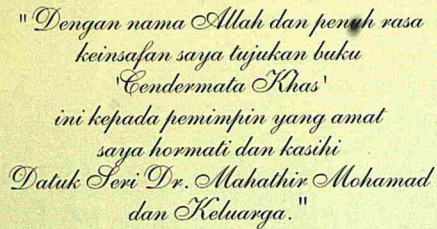 "Dengan nama Allah dan penuh rasa
keinsafan saya tujukan buku
'Cendermata Khas'
ini kepada pemimpin yang amat
saya hormati dan kasihi
Datuk Seri Dr. Mahathir Mohamad
dan Keluarga."